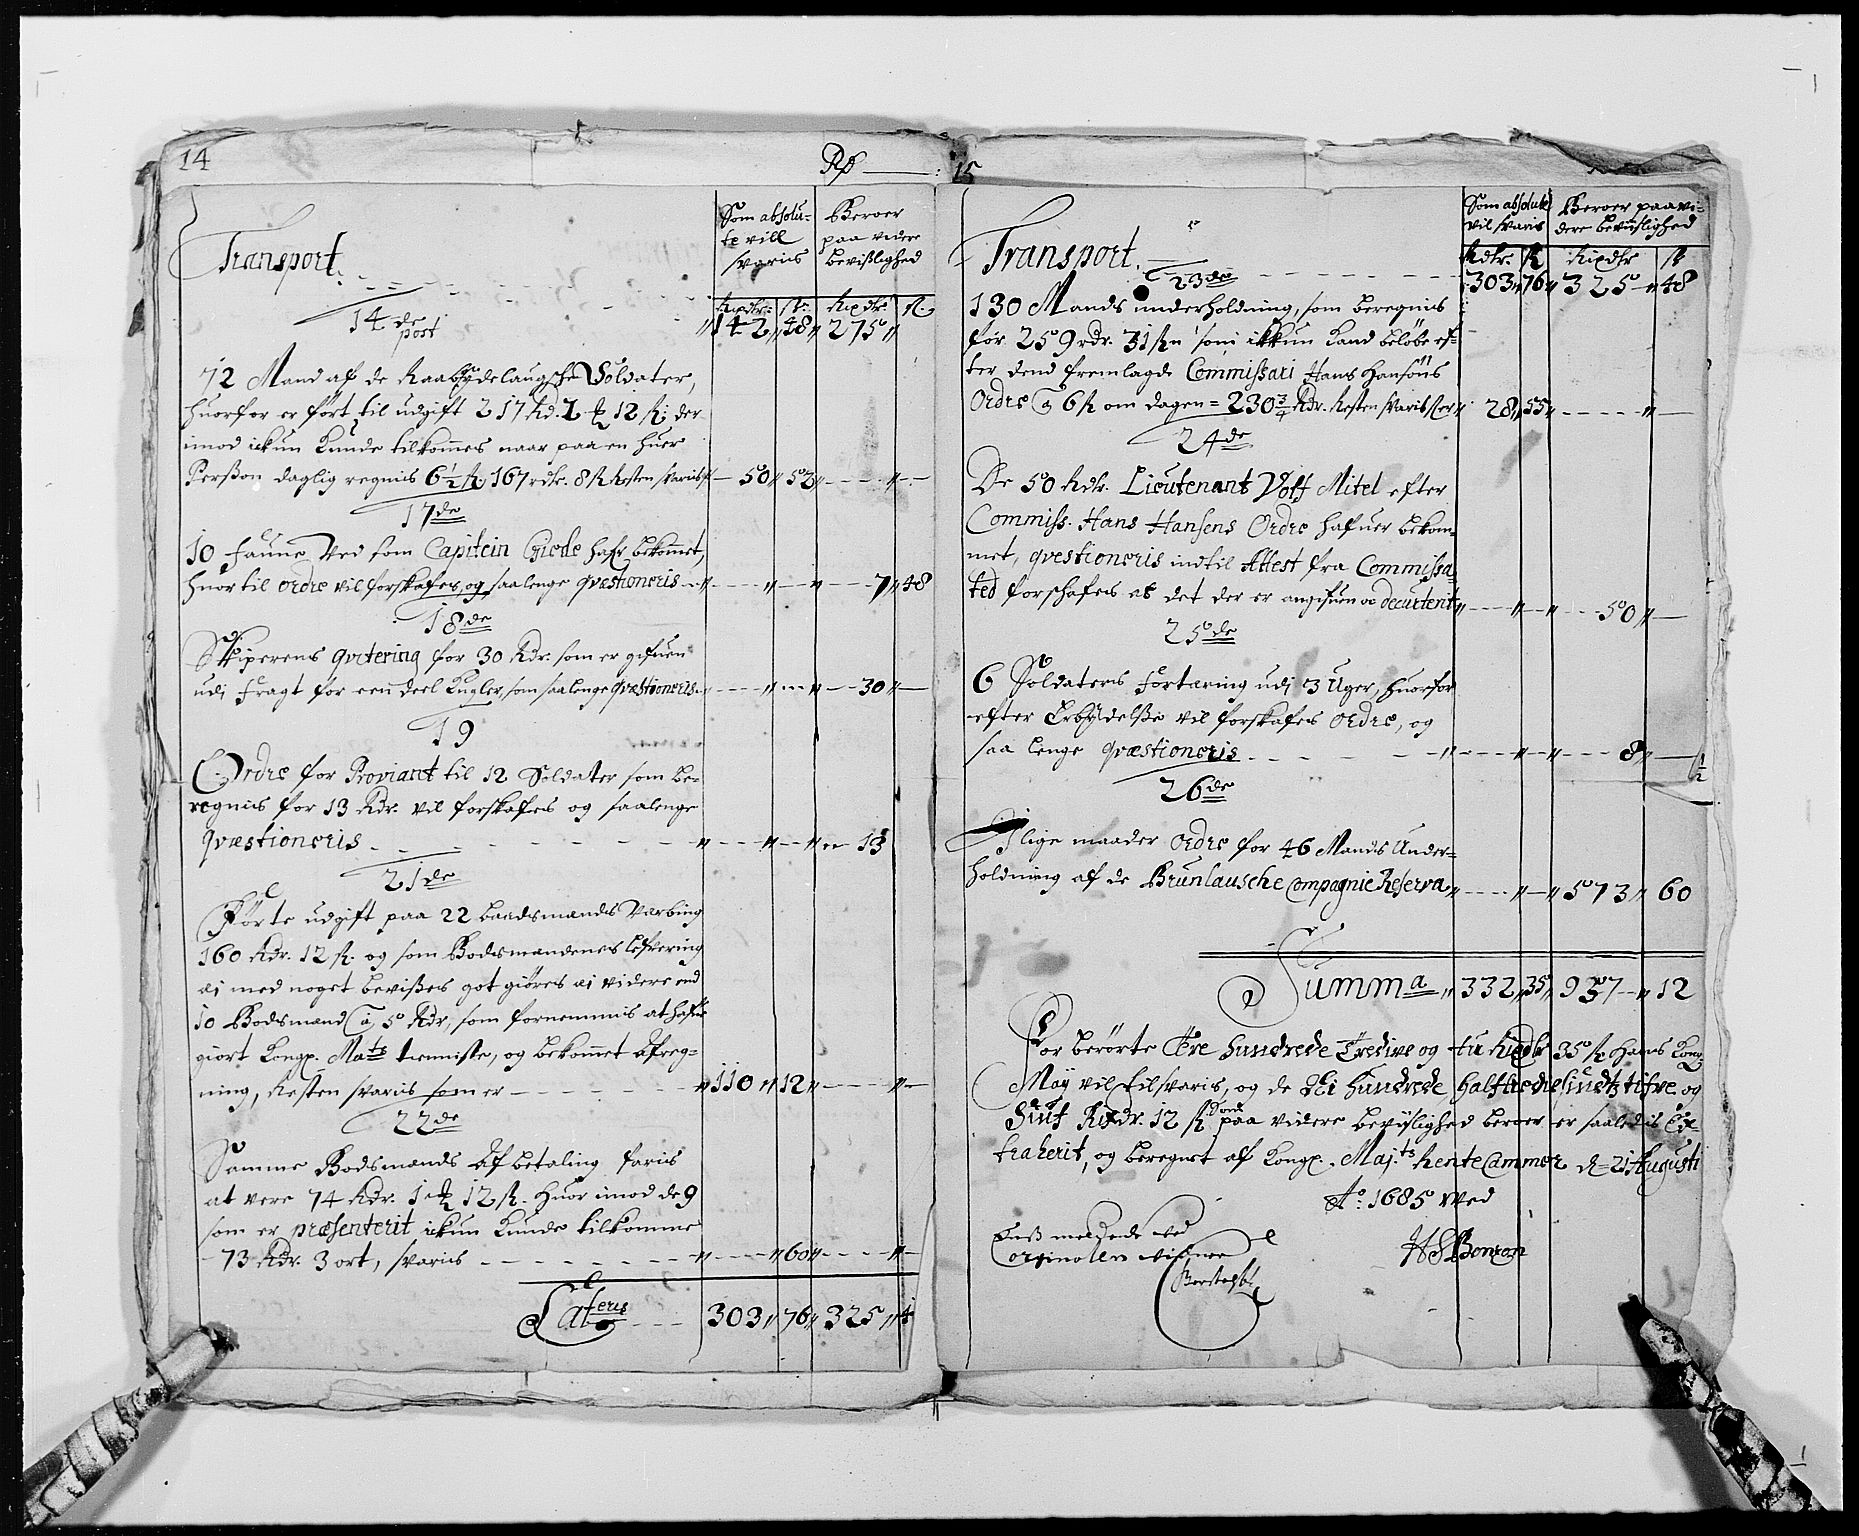 14
Rø
Som absolu-
te vill
svaris
Beroer
paa videre
bevislighed
Transport.
Rixdr. ß. Rixdr. ß.
142 48 275
14 de
post
72 Mand af de Raabydelaugsche Soldater,
huorfor er ført til udgift 217 Rd. 1 12 ß. der
imod ickun kunde tilkommes naar paa en huer
Persson daglig regnis 6½ ß, 167 rdr. 8 ß Resten svaris 50 52
17 de
10 faune Ved som Capitein Giede hafr bekommet,
huor til ordre vil forskafes og saalenge qvæstioneris 7 48
18 de
Skiperens qvitering for 30 Rdr. som er gifuen
udi Fragt for een deel Kugler, som saa lenge qvæstioneris 30
19
Ordre for Proviant til 12 Soldater som be-
regnis for 13 Rdr. vil forskafes og saalenge
qvæstioneris 13
21 de
Førte udgift paa 22 baadsmands Værbing
160 Rdr. 12 ß. og som Bodsmandenes lefvering
ei med noget bevises got giøres ei videre end
10 Bodsmand a 5 Rdr, som fornemmis at hafue
giort Kongl. Mats tienniste, og bekommet Afreg-
ning, Resten svaris som er 110 12
22 de
Samme Bodsmands Af betaling
at vere 74 Rdr. 1 12 ß. huor imod de 9
som er præsenterit ickun kunde tilkomme
73 Rdr. 3 ort, svaris 60
Lateris 303 76 325
15
Som absolute
vil svaris
Beroer paa vi-
dere beviislighed
Transport.
Rdr. ß Rixdr ß
303 76 325 48
23 de
130 Mands underholdning, som beregnis
for 259 rdr. 31 ß som ickun kand beløbe ef-
ter dend fremlagde Commissari Hans Hansøns
Ordre a 6 ß om dagen = 230¾ Rdr. Resten svaris er 28 55
24 de
De 50 Rdr. Lieutenant Volf Mitel efter
Commiss. Hans Hansens Ordre hafuer bekom-
met, qvestioneris indtil Attest fra Commissa-
forschafes at det der er angifuen oc decurterit 50
25 de
6 Soldaters Fortæring udi 3 Uger, huorfor
efter Erbydelse vil forskafes ordre, og
saa lenge qvæstioneris 8
½
26 de
I lige maader ordre for 46 Mands Under-
holdning af de Brunlausche Compagnie Reserva 573 60
Summa 332 35 957 12
For berørte Tre hundrede Tredive og tu Rixdr 35 ß Hans Kong.
May vil tilsvaris, og de Ni hundrede halftredie sindtz tifve og
Siuf Rixdr. 12 ß som paa videre beviislighed beroer er saaledis Ex-
traherit, og beregnet af Kongl. Maj.ts RenteCammer d. 21 Augusti
Ao. 1685 Ved
HSBonzon